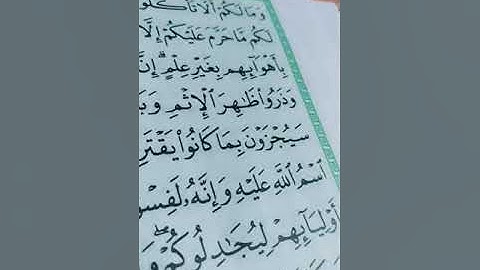 وَمَا لَكُمْ أَلَّا تَأْكُلُوا۟
لَكُم مَّا حَرَّمَ عَلَيْكُمْ إِلَّا
بِأَهْوَآئِهِم بِغَيْرِ عِلْمٍ ۗ إِنَّ
وَذَرُوا۟ ظَٰهِرَ ٱلْإِثْمِ وَ
سَيُجْزَوْنَ بِمَا كَانُوا۟
ٱسْمُ ٱللَّهِ عَلَيْهِ وَإِنَّهُۥ
أَوْلِيَآئِهِمْ لِيُجَٰدِلُوكُمْ ۖ